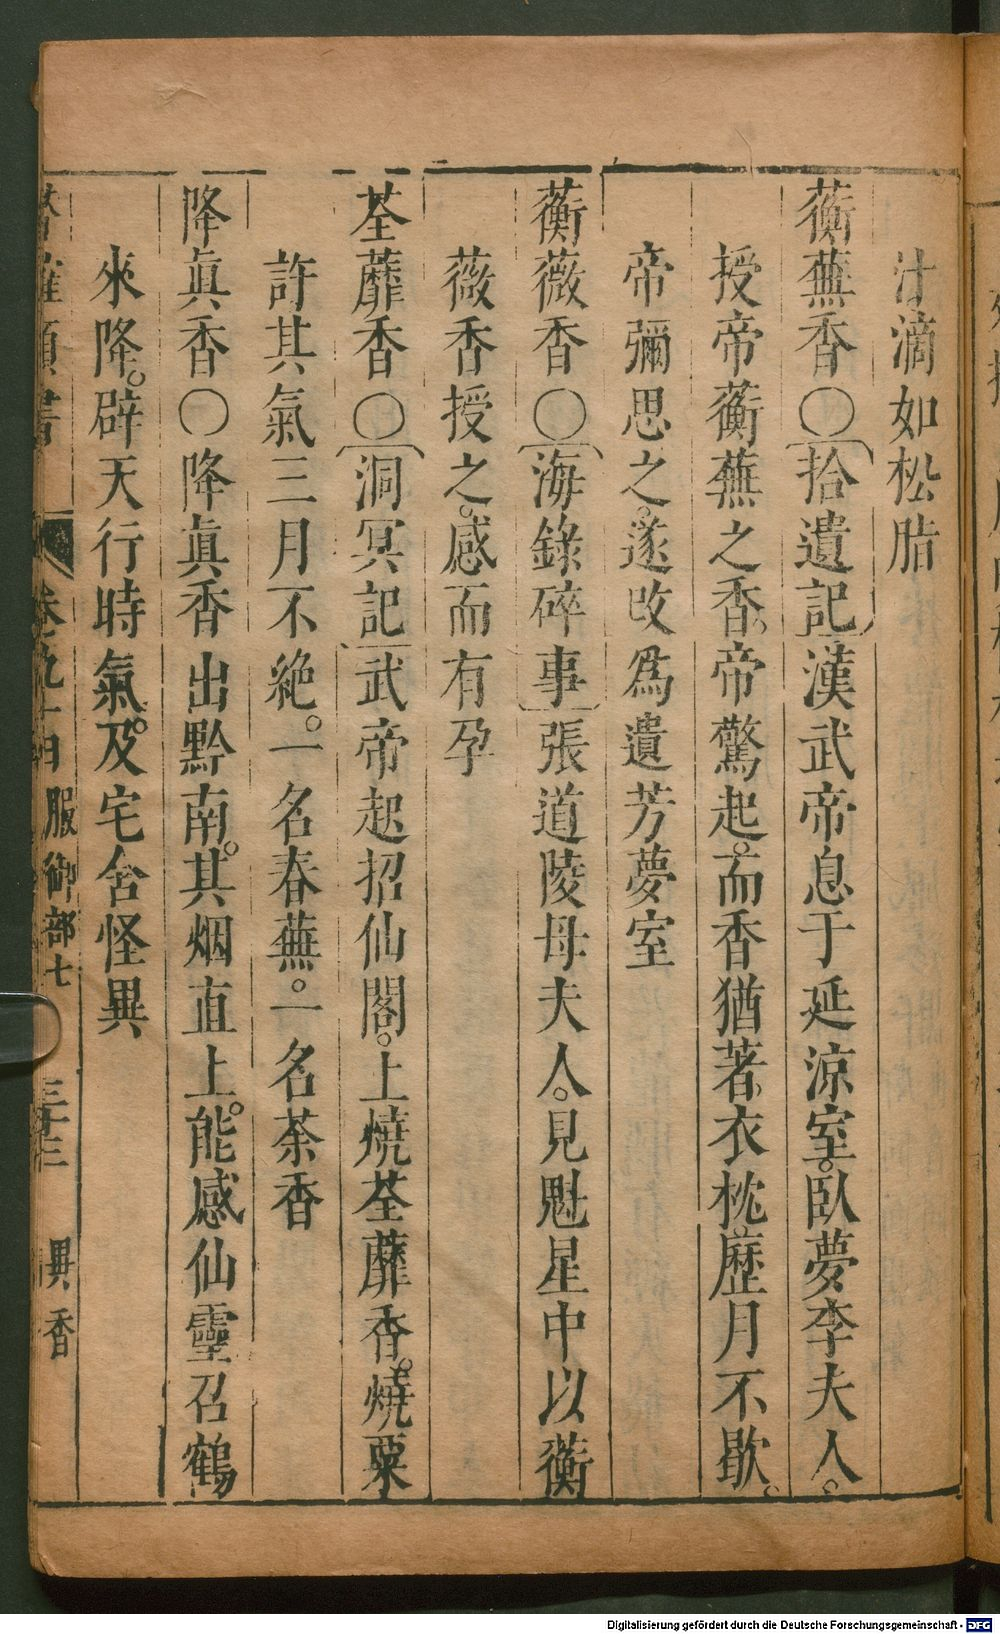 汁滴如松脂
蘅蕪香○拾遺記漢武帝息于延涼室。臥夢李夫人。
授帝蘅蕪之香。帝驚起。而香猶著衣枕。歷月不歇。
帝彌思之。遂改為遺芳夢室
蘅薇香○海錄碎事張道陵母夫人。見魁星中以蘅
薇香授之。感而有孕
荃蘼香○洞冥記武帝起招仙閣。上燒荃蘼香。燒粟
許其氣三月不絶。一名春蕪。一名荼香
降眞香○降眞香出黔南。其烟直上。能感仙靈召鶴
來降。辟天行時氣。及宅舍怪異
類書
服御部七
異香
Digitalisierung gefördert durch die Deutsche Forschungsgemeinschaft - DFG